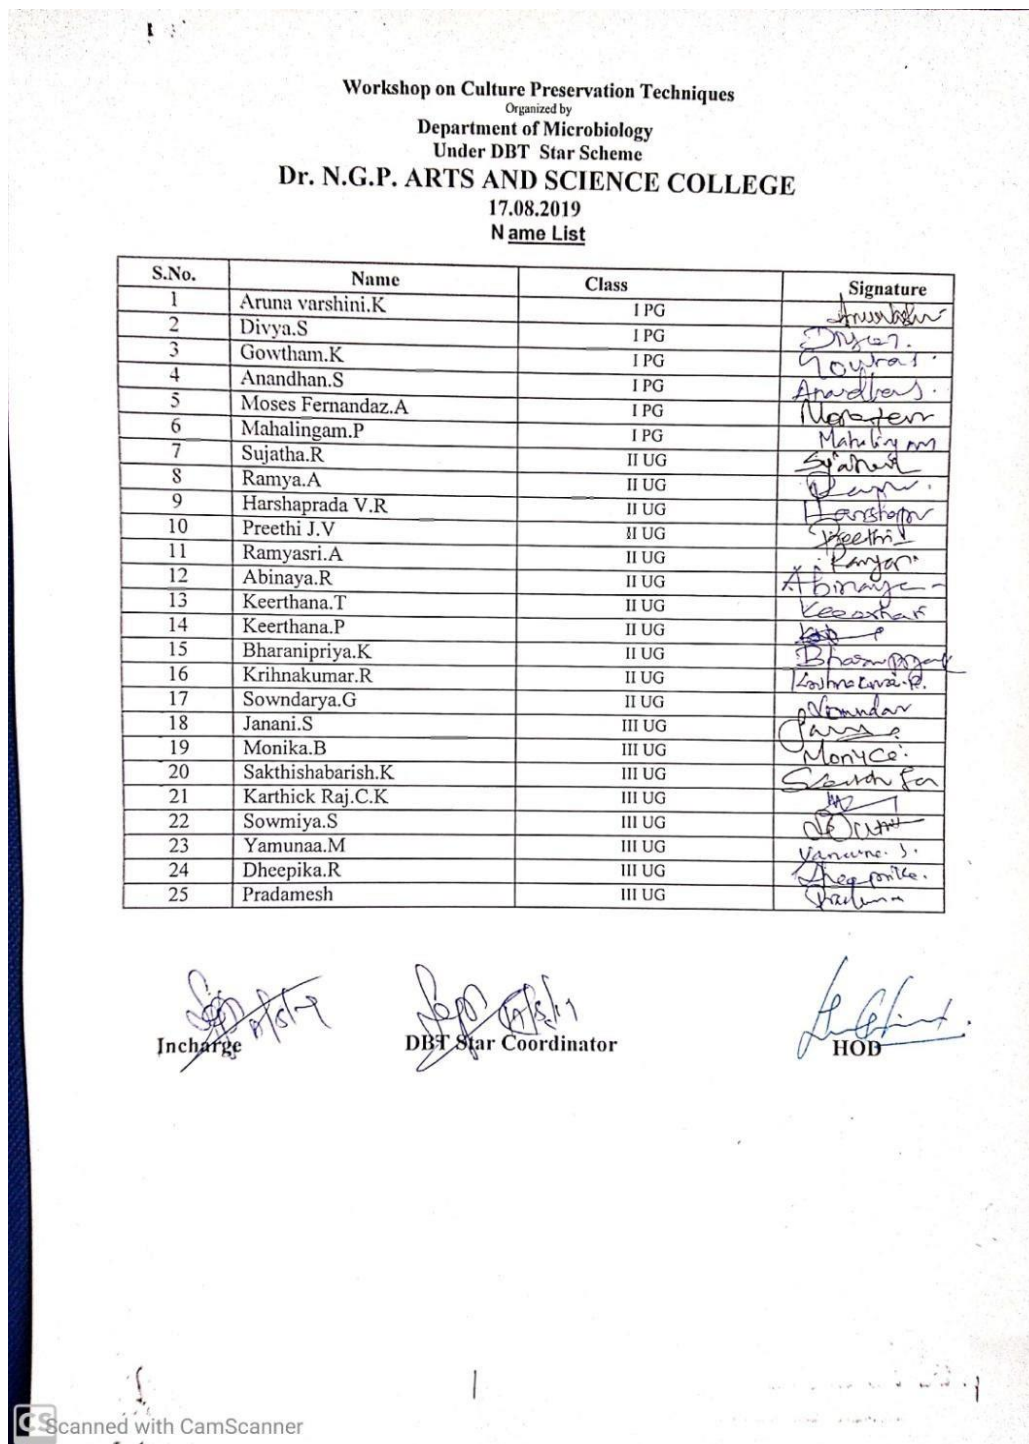 Workshop on Culture Preservation Techniques
Organized by
Department of Microbiology
Under DBT Star Scheme
Dr. N.G.P. ARTS AND SCIENCE COLLEGE
17.08.2019
Name List
S.No. Name Class Signature
1 Aruna varshini.K I PG
2 Divya.S I PG
3 Gowtham.K I PG
4 Anandhan.S I PG
5 Moses Fernandaz.A I PG
6 Mahalingam.P I PG Mahalingam
7 Sujatha.R II UG
8 Ramya.A II UG
9 Harshaprada V.R II UG
10 Preethi J.V II UG Preethi
11 Ramyasri.A II UG
12 Abinaya.R II UG Abinaya
13 Keerthana.T II UG
14 Keerthana.P II UG
15 Bharanipriya.K II UG
16 Krihnakumar.R II UG
17 Sowndarya.G II UG
18 Janani.S III UG
19 Monika.B III UG
20 Sakthishabarish.K III UG
21 Karthick Raj.C.K III UG
22 Sowmiya.S III UG
23 Yamunaa.M III UG
24 Dheepika.R III UG
25 Pradamesh III UG
Incharge DBT Star Coordinator HOD
CS Scanned with CamScanner